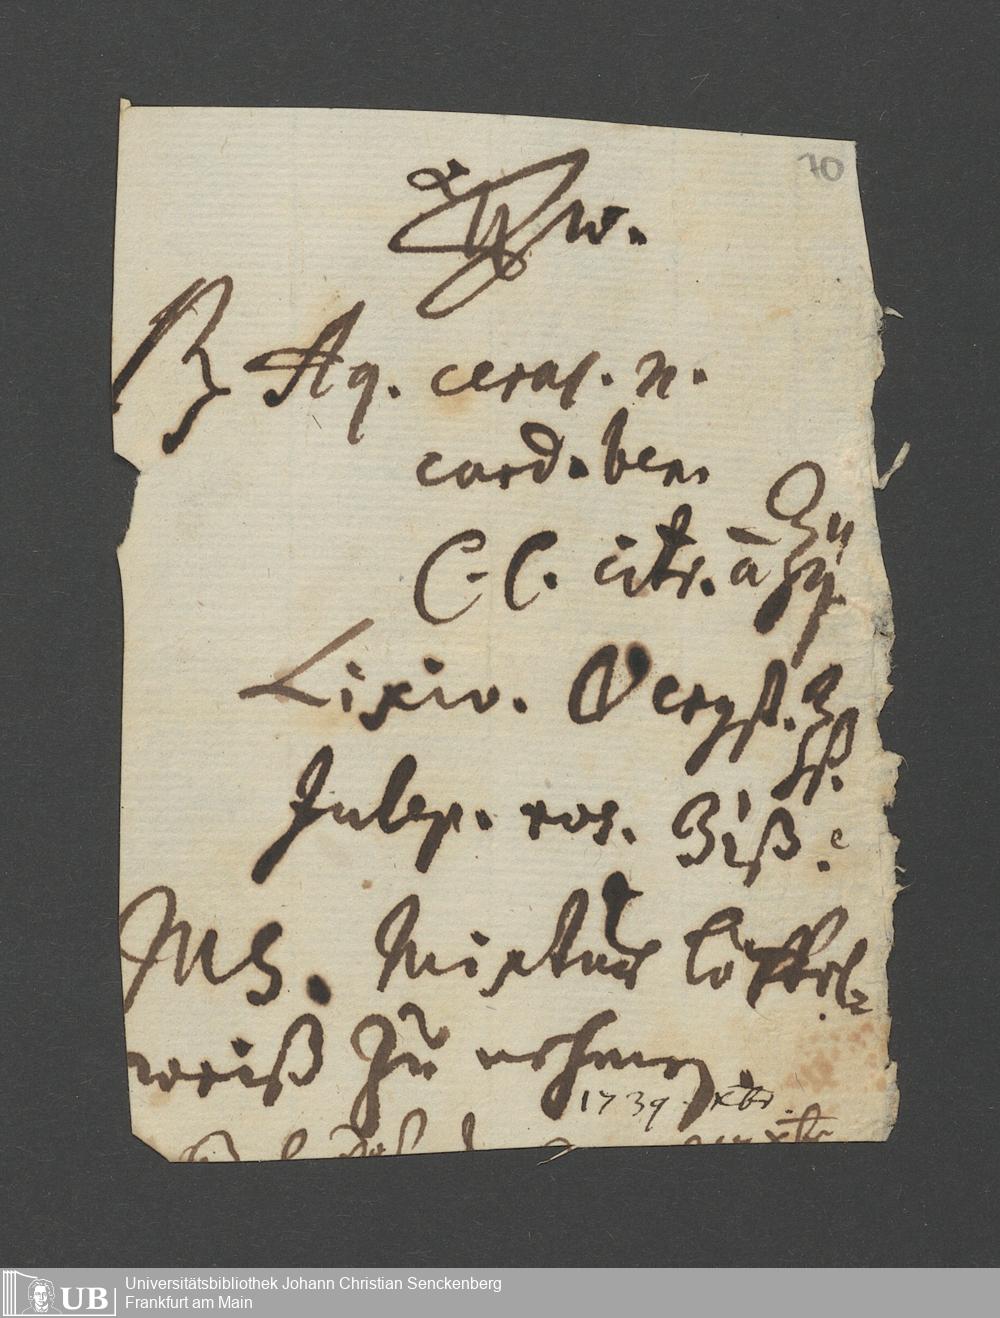 10
w.
℞ Aq. ceras. n.
card. ben.
C. C. citr. ā ʒij
Lixiv. Bergst. ʒ
ß.
Julep. ros. ʒiß.
MS. Mixtur löffel-
weiß zu nehmen.
1739. Xbr.
UB Universitätsbibliothek Johann Christian Senckenberg
Frankfurt am Main